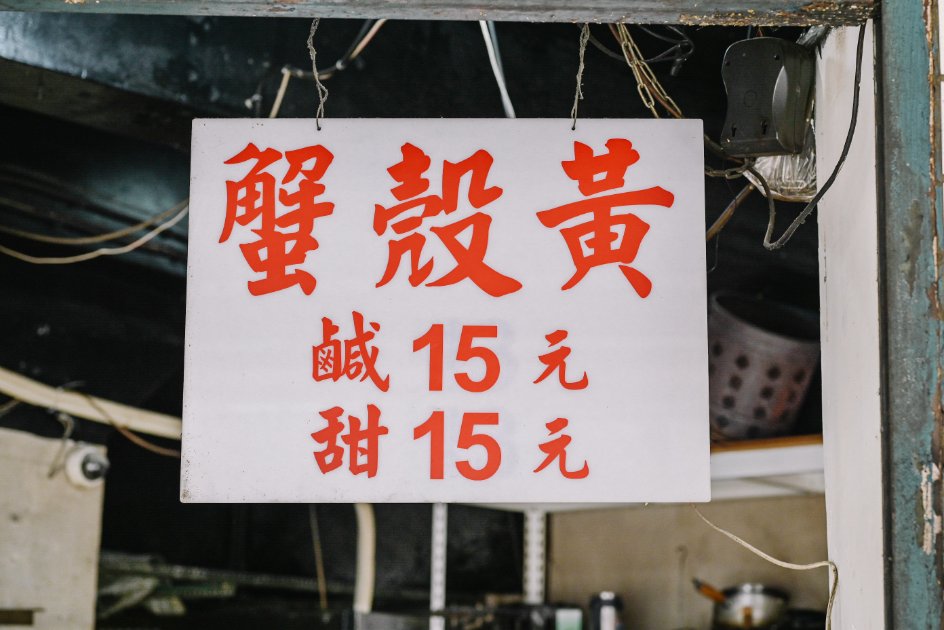 蟹殼黃
鹹 15 元
甜 15 元